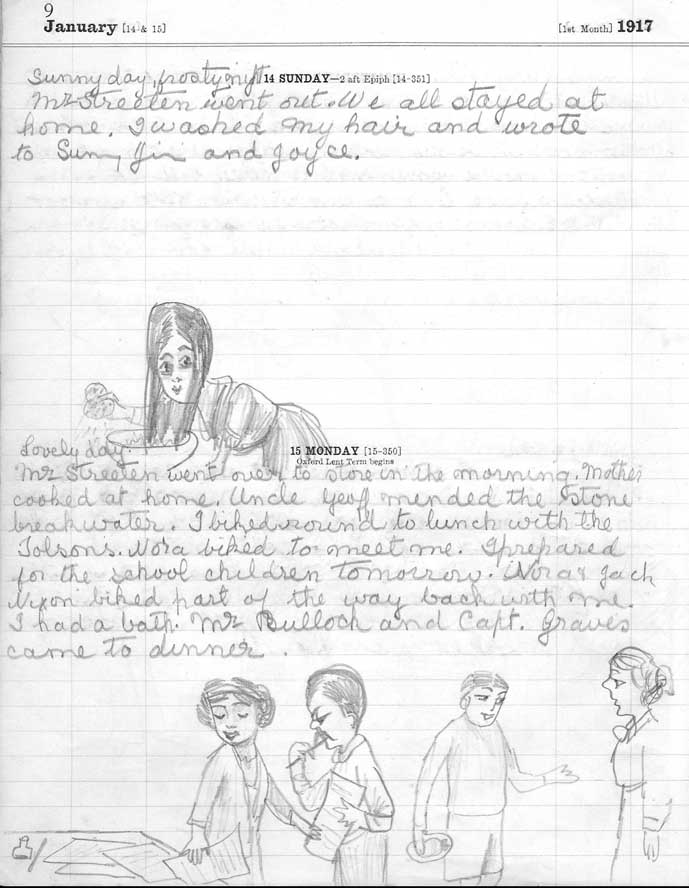 9
January [14 & 15] [1st Month] 1917
Sunny day, frosty night 14 SUNDAY—2 aft Epiph [14-351]
Mr Streeten went out. We all stayed at
home. I washed my hair and wrote
to Sunny, Jim and Joyce.
Lovely day. 15 MONDAY [15-350]
Oxford Lent Term begins
Mr Streeten went over to store in the morning. Mother
cooked at home. Uncle Geoff mended the stone
breakwater. I biked round to lunch with the
Tolsons. Nora biked to meet me. I prepared
for the school children tomorrow. Nora & Jack
Nixon biked part of the way back with me.
I had a bath. Mr Bulloch and Capt. Graves
came to dinner.